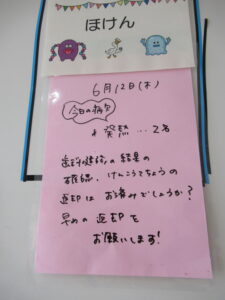 ほけん
6月12日(木)
今日の病欠
発熱…2名
歯科健診の結果の
けんこうてちょうの
返却はお済みでしょうか?
早めの返却を
お願いします!